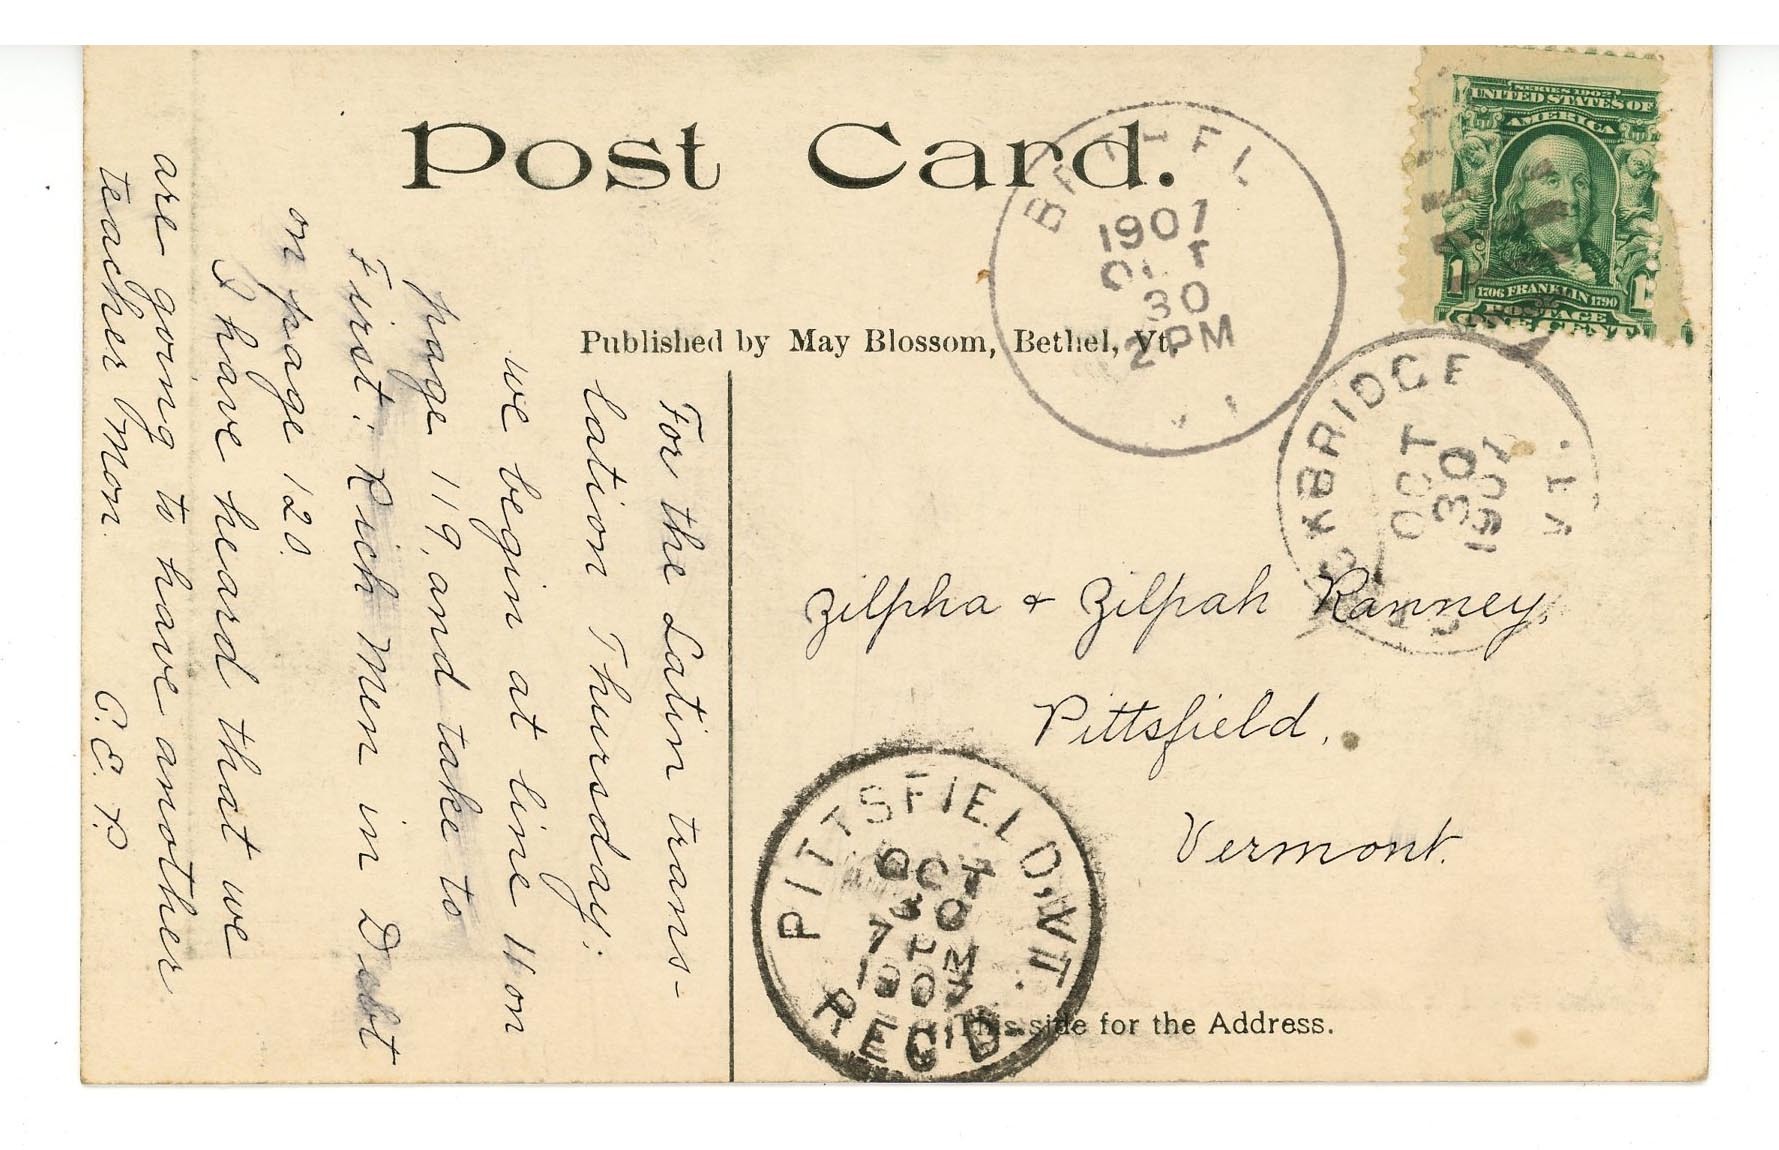 Post Card.
Published by May Blossom, Bethel, Vt.
SERIES 1902
UNITED STATES OF
AMERICA
1 1
1706 FRANKLIN 1790
POSTAGE
ONE CENT
BETHEL
1907
OCT
30
2 PM
VT
STOCKBRIDGE
OCT
30
1907
VT.
For the Latin trans-
lation Thursday:
we begin at line 11 on
page 119, and take to
First: Rich Men in Debt
on page 120.
I have heard that we
are going to have another
teacher Mon.
C. E. P.
Zilpha & Zilpah Ranney,
Pittsfield,
Vermont.
PITTSFIELD, VT.
OCT
30
7 PM
1907
REC'D
This side for the Address.